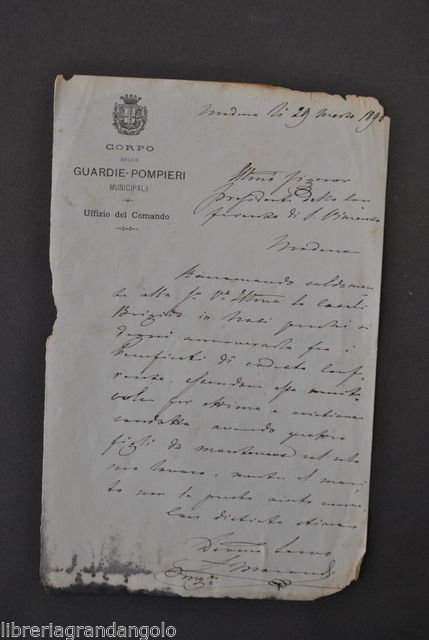 CORPO
DELLE
GUARDIE-POMPIERI
MUNICIPALI
Uffizio del Comando
Modena li 29 Marzo 189
Signor
Presidente della Con
ferenza di S. Vincenzo
Modena
Raccomando caldamen
te alla S. V. la
Brigida in perchè si
degni annoverarla fra i
beneficati di codesta Conf
renza, essendo essa merite
vole per ottima e cristiana
condotta avendo quattro
figli da mantenere col solo
suo lavoro, mentre il mari
to non le presta aiuto
Con distinta stima
libreriagrandangolo